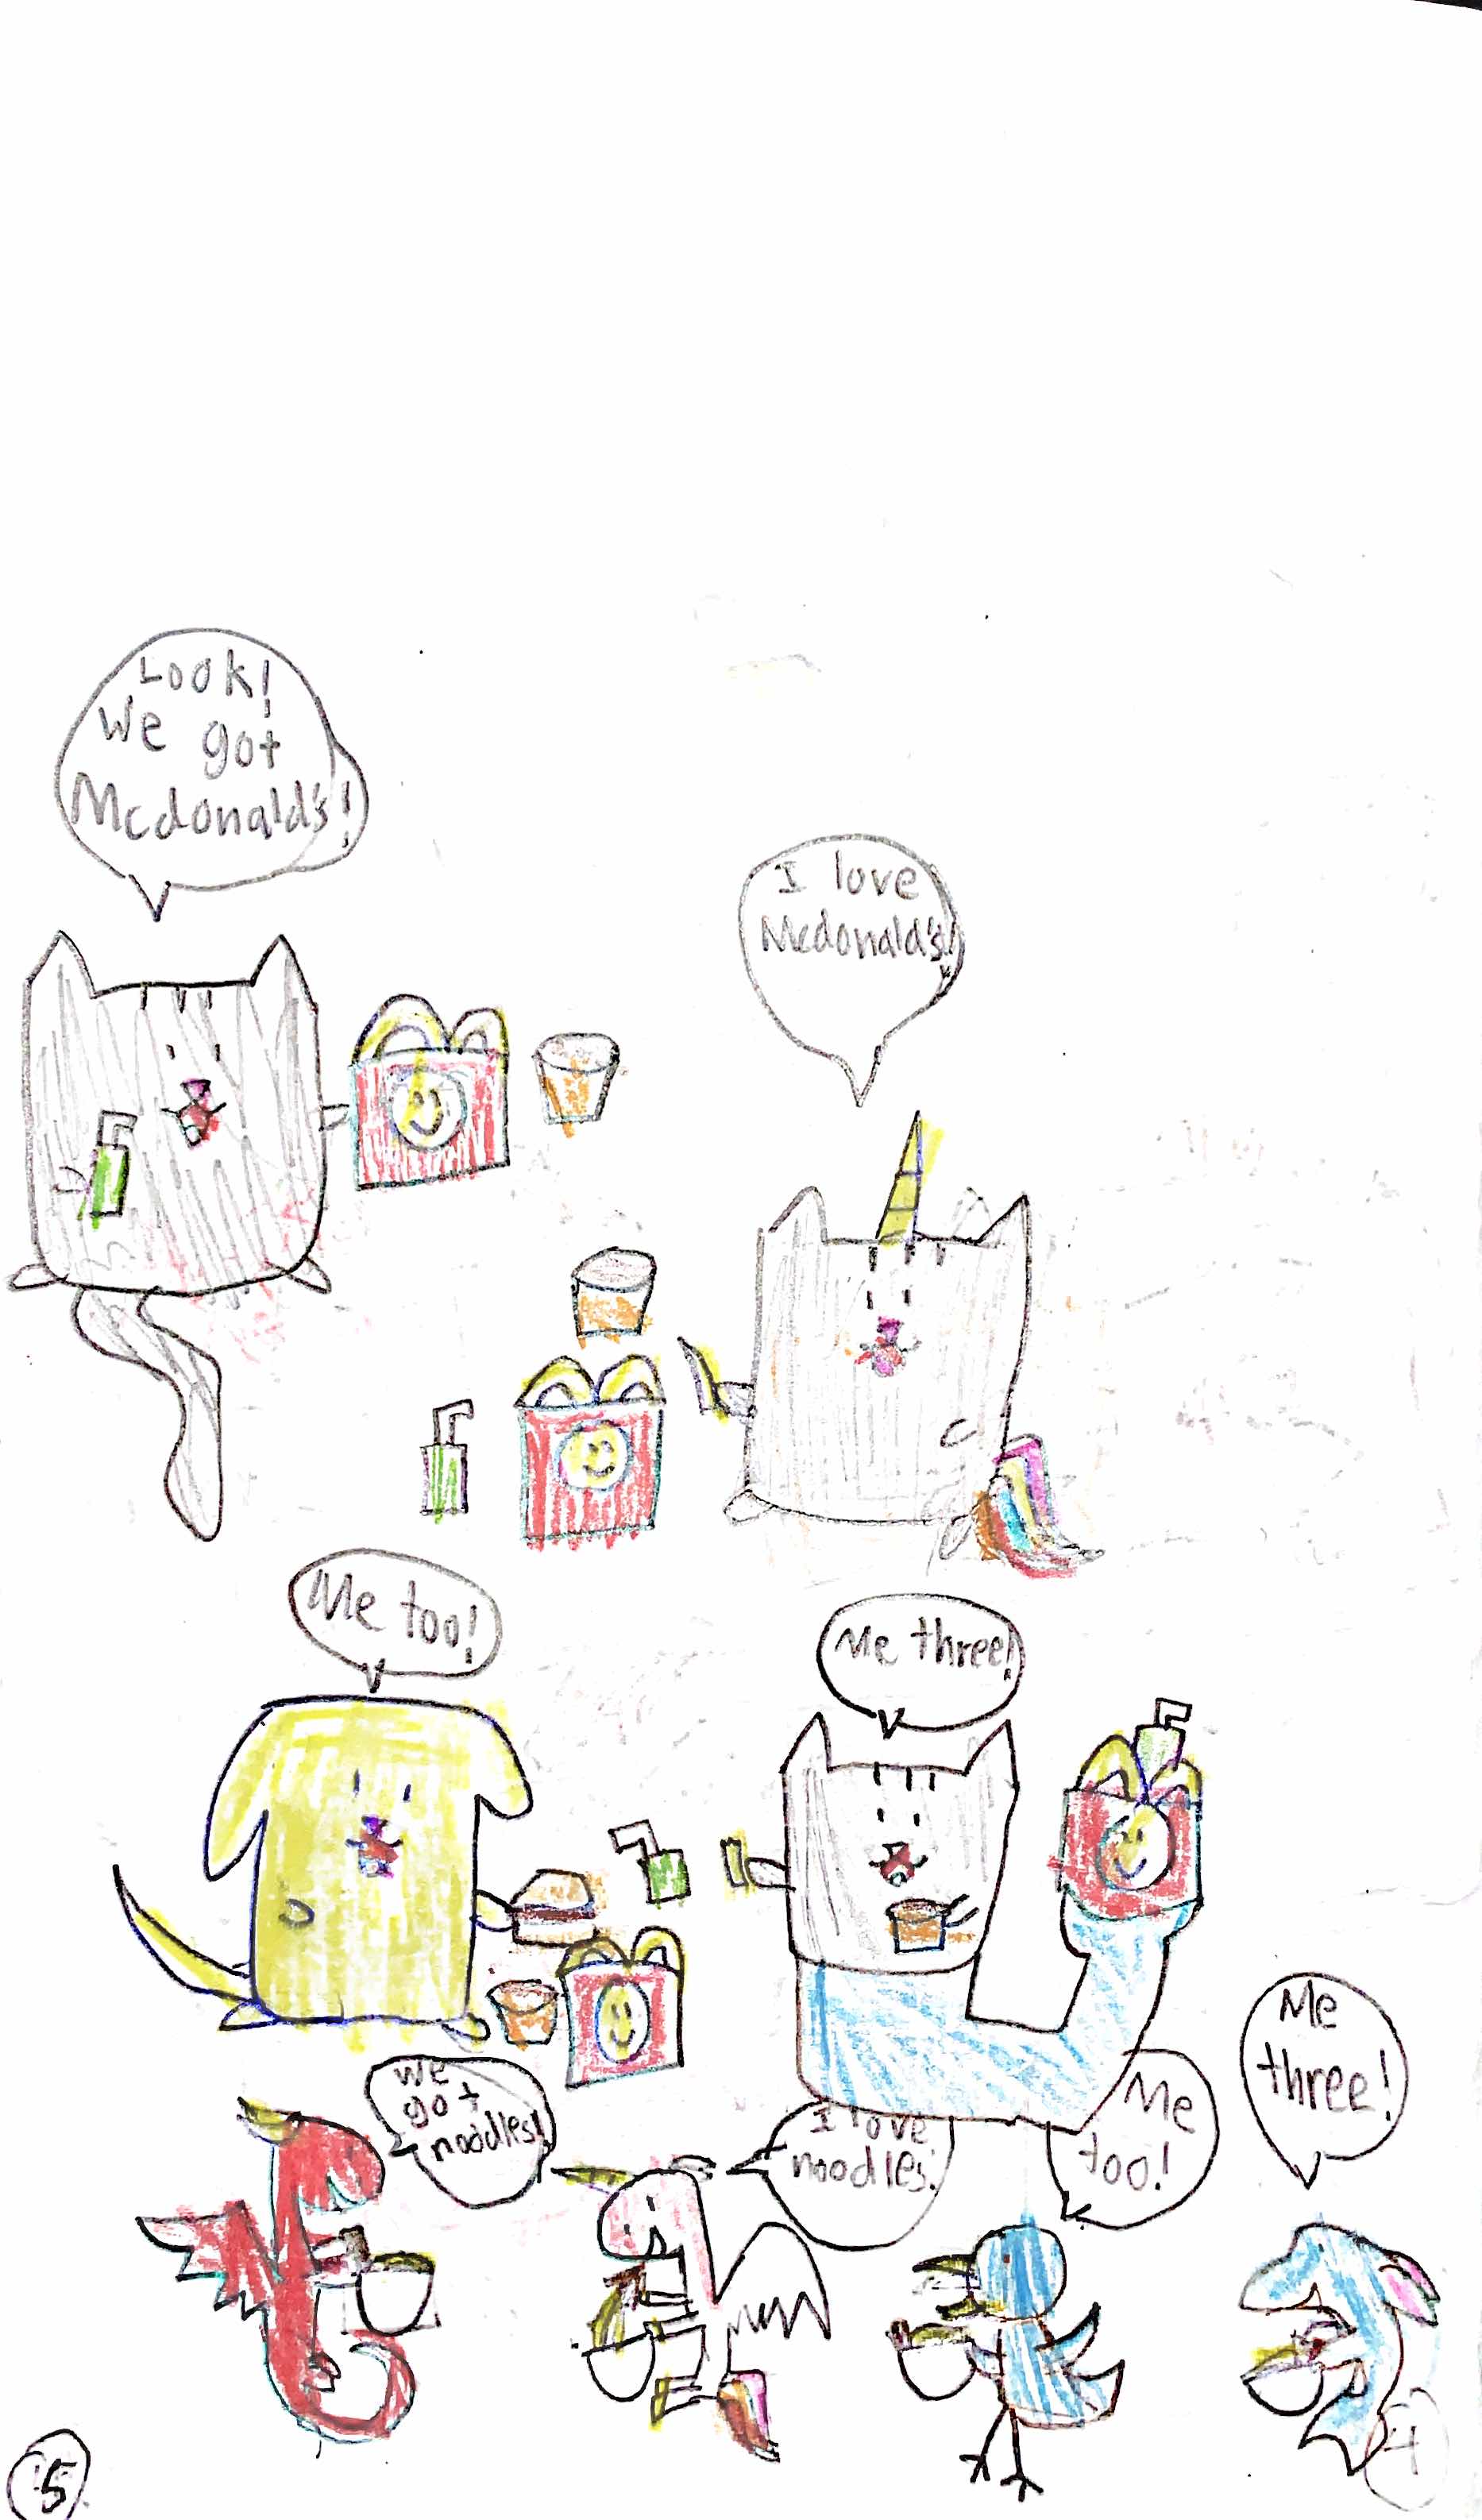 Look!
We got
Mcdonald's!
I love
Mcdonald's!
Me too!
Me three!
We
got
noodles!
I love
noodles!
Me
too!
Me
three!
5
4